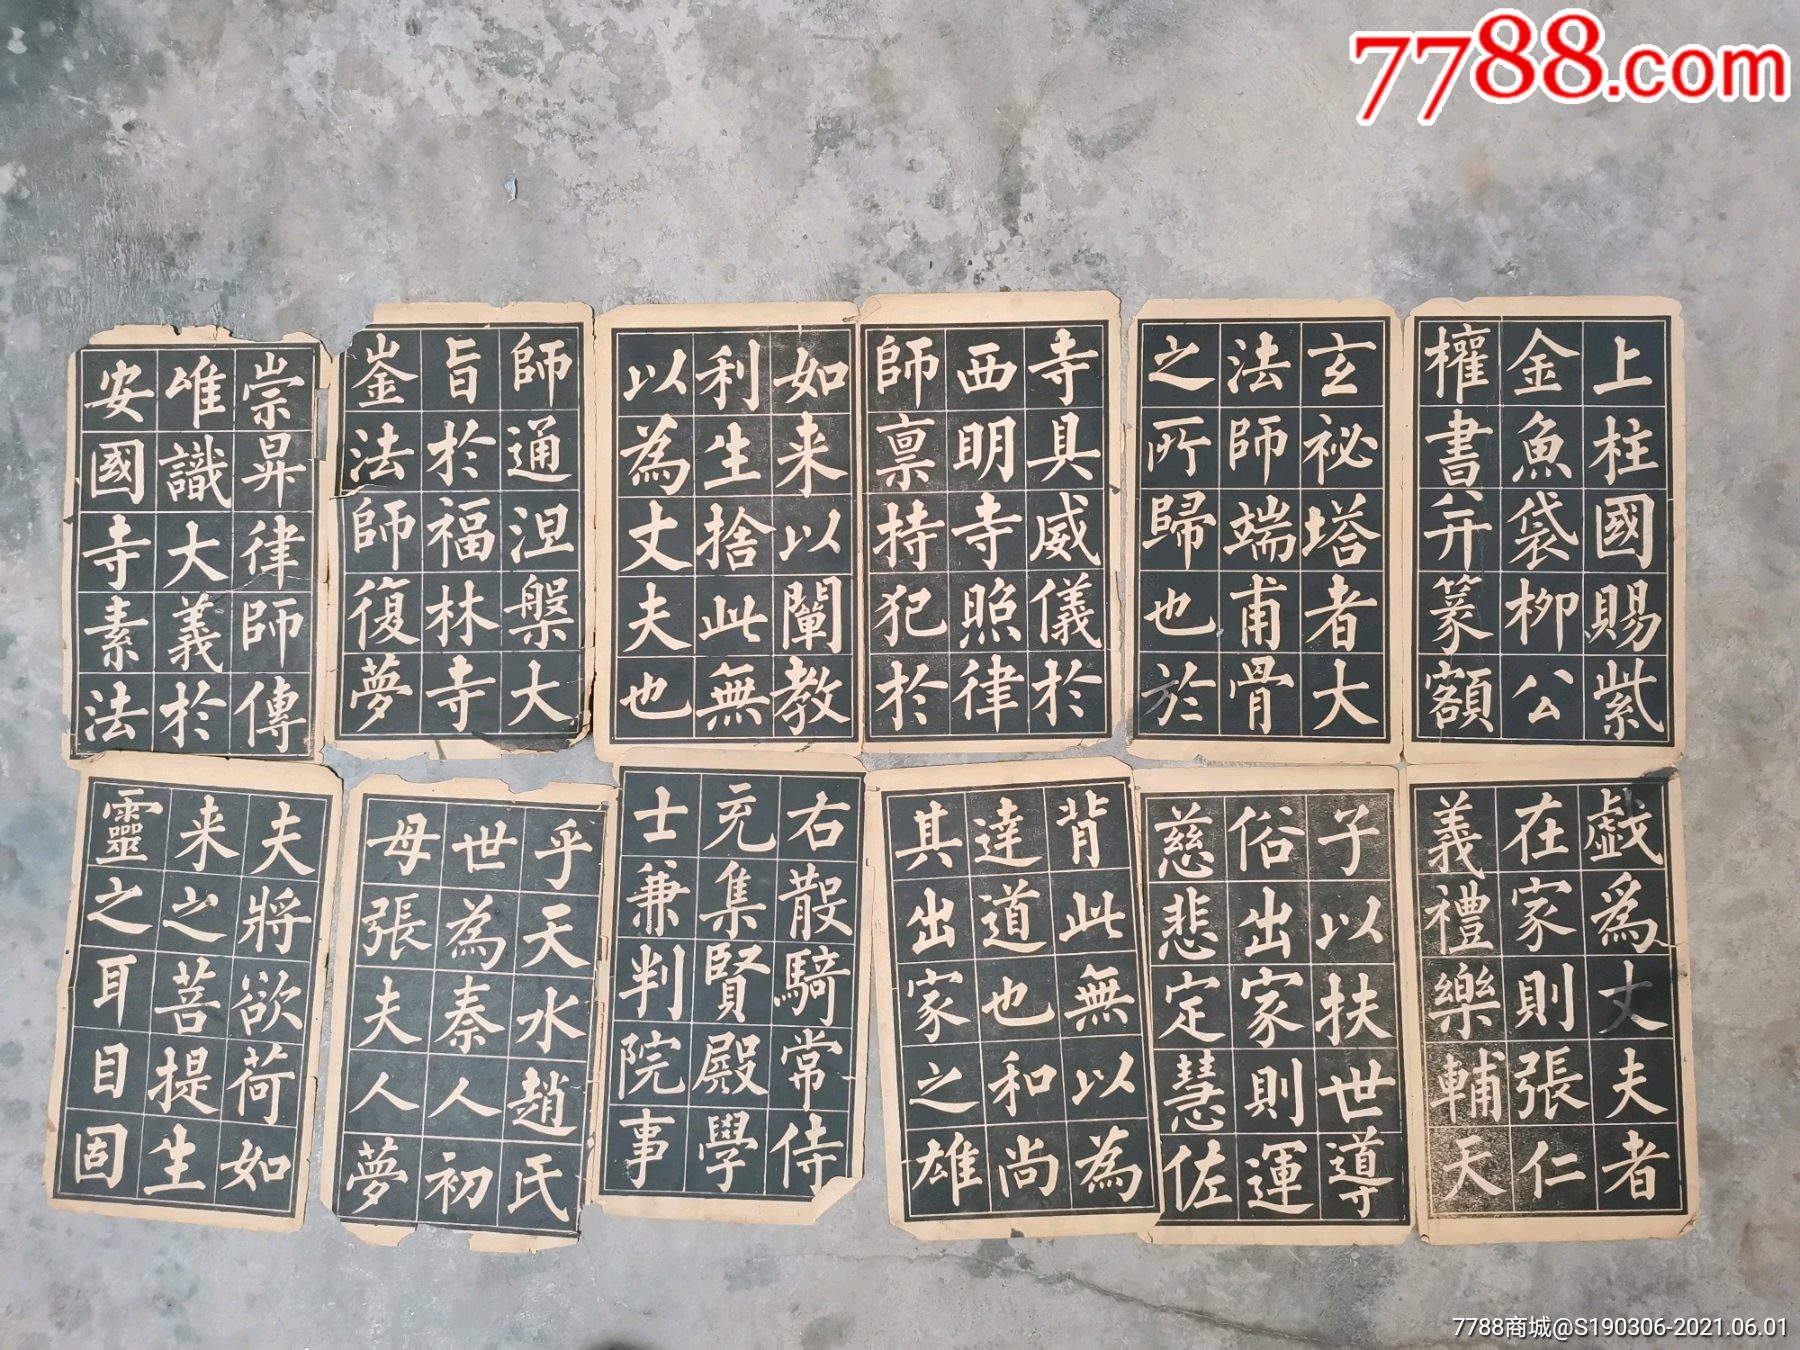 7788.com
上柱國賜紫
金魚袋柳公
權書并篆額
玄祕塔者大
法師端甫骨
之所歸也於
寺具威儀於
西明寺照律
師禀持犯於
如来以闡教
利生捨此無
以為丈夫也
師通涅槃大
旨於福林寺
崟法師復夢
崇昇律師傳
唯識大義於
安國寺素法
戯為丈夫者
在家則張仁
義禮樂輔天
子以扶世導
俗出家則運
慈悲定慧佐
背此無以為
達道也和尚
其出家之雄
右散騎常侍
充集賢殿學
士兼判院事
乎天水趙氏
世為秦人初
母張夫人夢
夫將欲荷如
来之菩提生
靈之耳目固
7788商城@S190306-2021.06.01